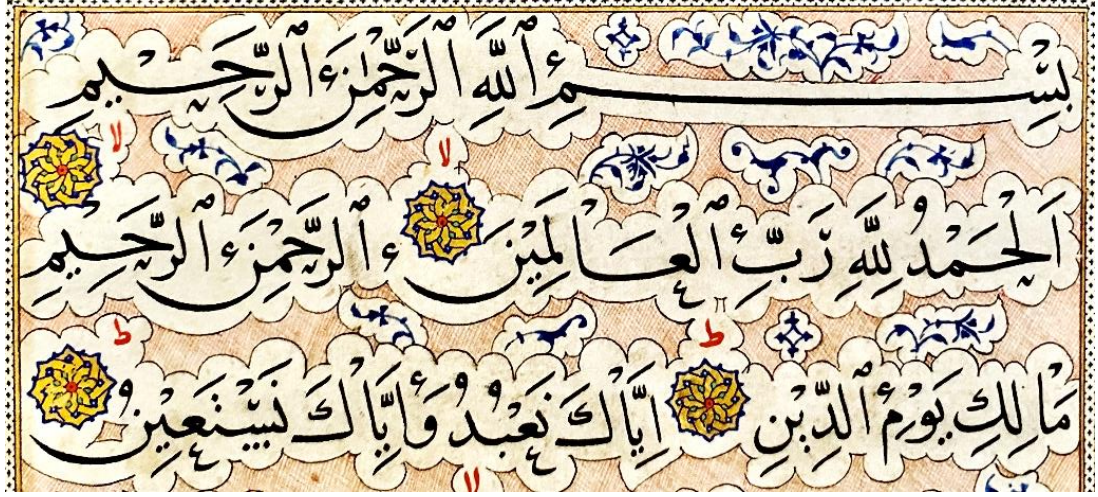 بِسْمِ ٱللَّهِ ٱلرَّحْمٰنِ ٱلرَّحِيمِ
لا لا
اَلْحَمْدُ لِلَّهِ رَبِّ ٱلْعَالَمِينَ ٱلرَّحْمٰنِ ٱلرَّحِيمِ
ط ط
مَالِكِ يَوْمِ ٱلدِّينِ اِيَّاكَ نَعْبُدُ وَاِيَّاكَ نَسْتَعِينُ
لا